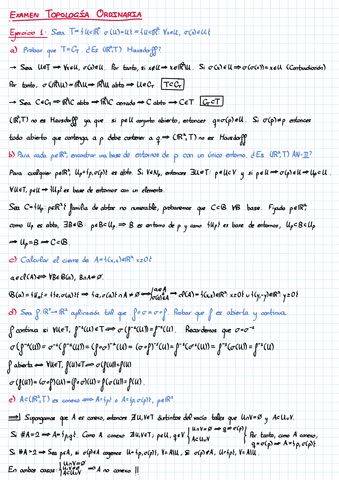 EXAMEN TOPOLOGÍA ORDINARIA
Ejercicio 1: Sea T={U⊂ℝ² σ(U)=U}={U⊂ℝ² ∀x∈U, σ(x)∈U}
a) Probar que T=C_T ¿Es (ℝ²,T) Hausdorff?
→ Sea U∈T ⇒ ∀x∈U, σ(x)∈U. Por tanto, si x∉U ⇒ x∈ℝ²\U. Si σ(x)∈U ⇒ σ(σ(x))=x∈U (Contradicción)
Por tanto, σ(ℝ²\U)=ℝ²\U ⇒ ℝ²\U abto ⇒ U∈C_T T⊂C_T
→ Sea C∈C_T ⇒ ℝ²\C abto ⇒ ℝ²\C cerrado ⇒ C abto ⇒ C∈T C_T⊂T
(ℝ²,T) no es Hausdorff ya que si p∈U conjunto abierto, entonces q=σ(p)∈U. Si σ(p)≠p entonces
todo abierto que contenga a p debe contener a q ⇒ (ℝ²,T) no es Hausdorff
b) Para cada p∈ℝ², encontrar una base de entornos de p con un único entorno. ¿Es (ℝ²,T) AN-II?
Para cualquier p∈ℝ², U_p={p,σ(p)} es abto. Si V∈N_p, entonces ∃U∈T: p∈U⊂V y si p∈U ⇒ σ(p)∈U ⇒ U_p⊂U.
∀U∈T, p∈U ⇒ {U_p} es base de entornos con un elemento.
Sea C={U_p: p∈ℝ²} familia de abtos no numerable, probaremos que C⊂B ∀B base. Fijado p∈ℝ²,
como U_p es abto, ∃B∈B: p∈B⊂U_p ⇒ B es entorno de p y como {U_p} es base de entornos, U_p⊂B⊂U_p
⇒ U_p=B ⇒ C⊂B.
c) Calcular el cierre de A={(x,0)∈ℝ² x≥0}
a∈cl(A) ⇔ ∀B∈B(a), B∩A≠∅.
B(a)={U_a}={{a,σ(a)}} ⇒ {a,σ(a)}∩A≠∅ ⇒ a∈A σ(a)∈A ⇒ cl(A)={(x,0)∈ℝ² x≥0}∪{(y,-y)∈ℝ² y≥0}
d) Sea f:ℝ²→ℝ² aplicación tal que f∘σ=σ∘f. Probar que f es abierta y continua.
f continua si ∀U∈T, f⁻¹(U)∈T ⇔ σ(f⁻¹(U))=f⁻¹(U). Recordemos que σ=σ⁻¹
σ(f⁻¹(U))=σ⁻¹(f⁻¹(U))=(f∘σ)⁻¹(U)=(σ∘f)⁻¹(U)=f⁻¹(σ⁻¹(U))=f⁻¹(σ(U))=f⁻¹(U)
f abierta ⇔ ∀U∈T, f(U)∈T ⇔ σ(f(U))=f(U)
σ(f(U))=(σ∘f)(U)=(f∘σ)(U)=f(σ(U))=f(U).
e) A⊂(ℝ²,T) es conexo ⇔ A={p} o A={p,σ(p)}, p∈ℝ².
⇒ Supongamos que A es conexo, entonces ∄U,V∈T distintos del vacío tales que U∩V=∅ y A⊂U∪V.
Si #A=2 ⇒ A={p,q}. Como A conexo ∄U,V∈T, p∈U, q∈V U∩V=∅ ⇒ q≠σ(p) A⊂U∪V Por tanto, como A conexo, q=σ(p) ⇒ A={p,σ(p)}.
Si #A>2 ⇒ Sea p∈A, si σ(p)∈A cogemos U={p,σ(p)}, V=A\U, Si σ(p)∉A, U={p}, V=A\U.
En ambos casos: U∩V=∅ A⊂U∪V ⇒ A no conexo ||